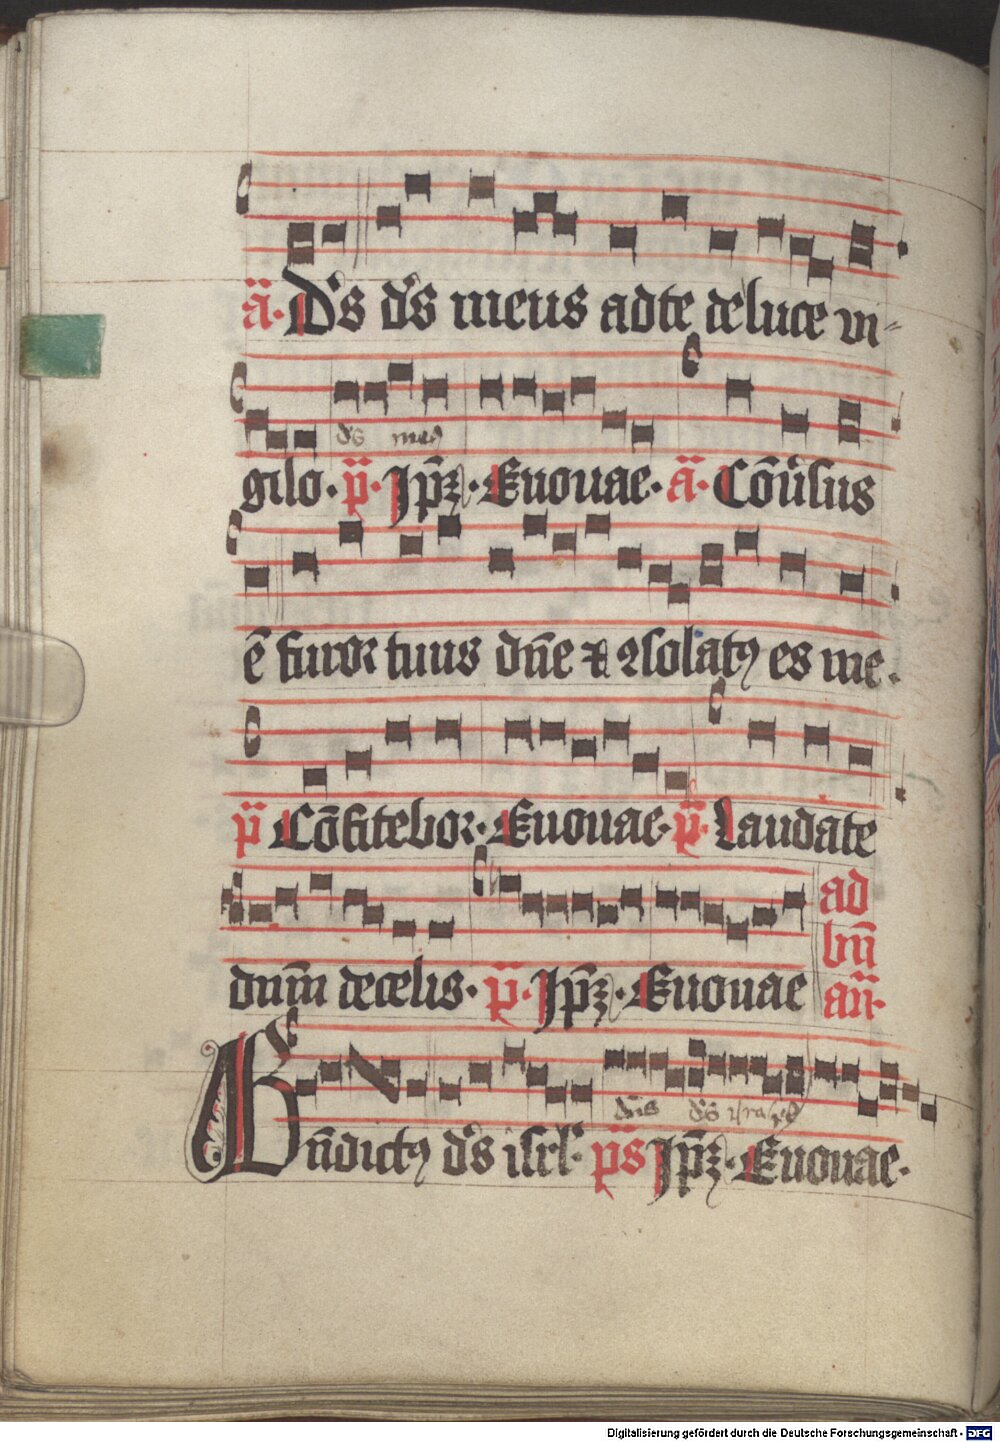 a̅· Ds̅ ds̅ meus ad te de luce vi-
gilo · p̅ · Ip̅ꝫ · Euouae · a̅ · Co̅u̅sus
e̅ furor tuus dn̅e ⁊ ꝯsolatꝰ es me ·
p̅ Co̅fitebor · Euouae · p̅ · Laudate
dn̅m de celis · p̅ · Ip̅ꝫ · Euouae
ad
bn̅
an̅·
Bn̅dictꝰ ds̅ isrl · ps̅ Ip̅ꝫ · Euouae ·
Digitalisierung gefördert durch die Deutsche Forschungsgemeinschaft - DFG